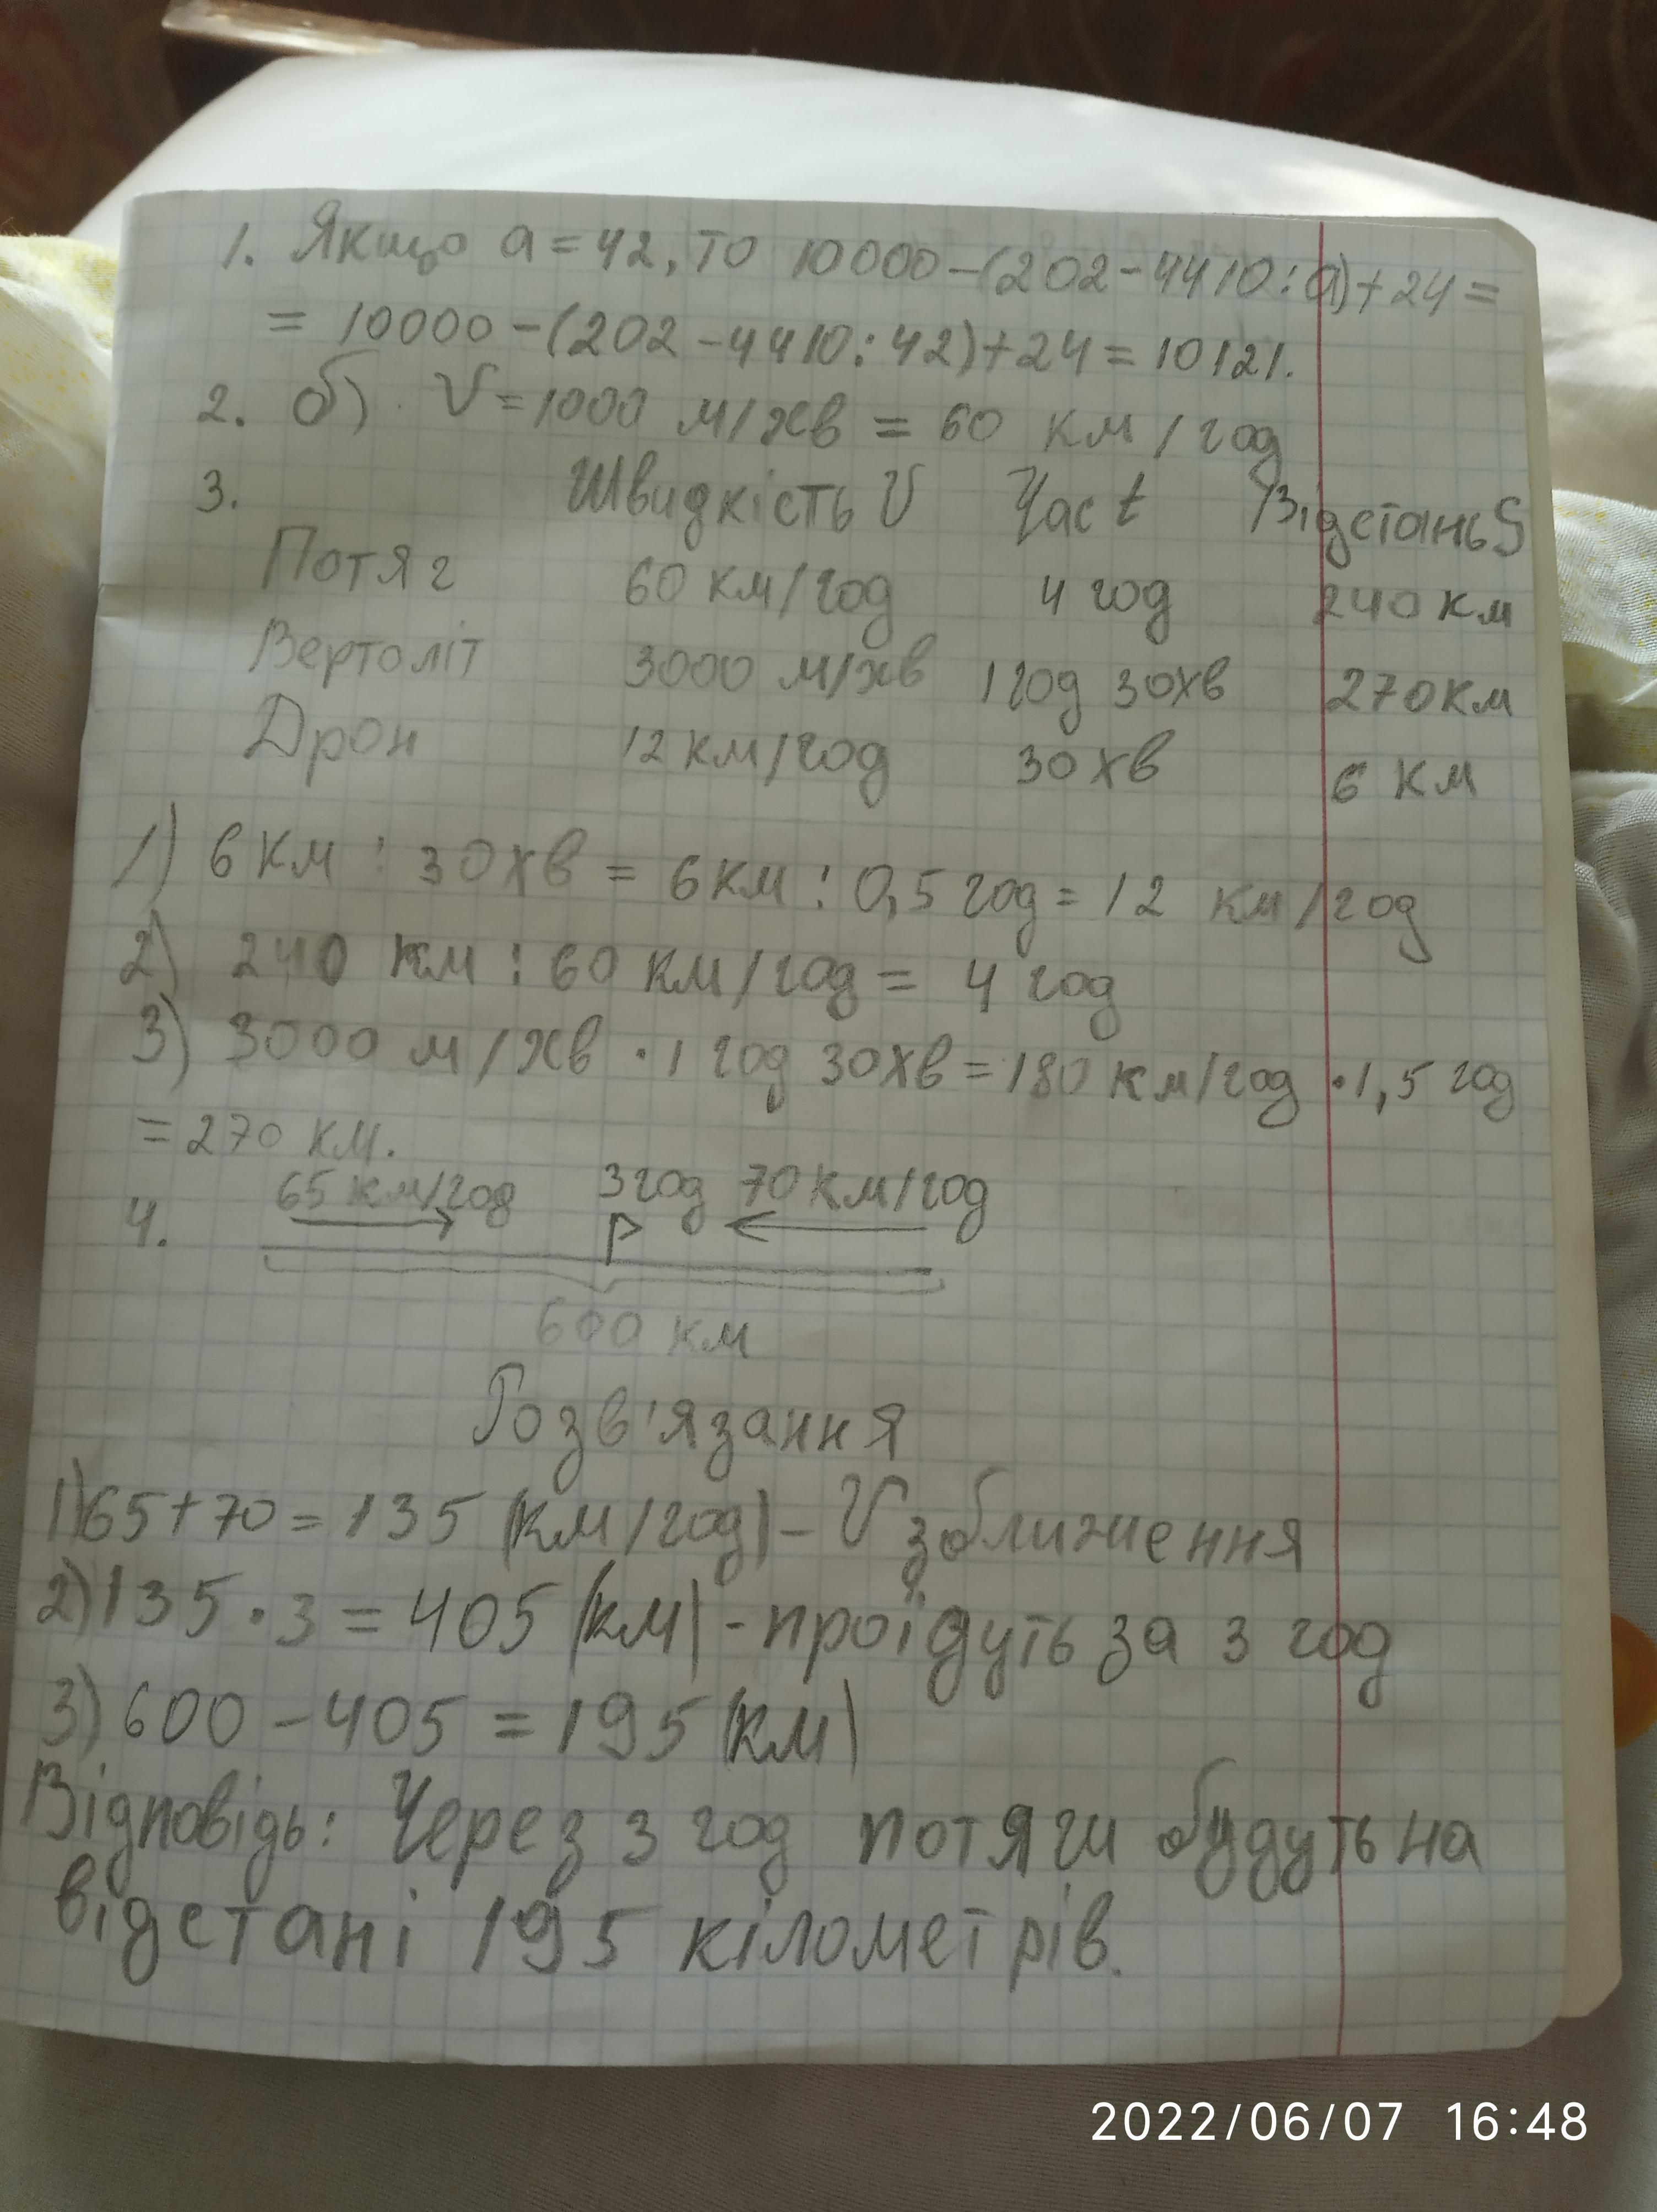 1. Якщо a = 42, то 10000 - (202 - 4410 : a) + 24 =
= 10000 - (202 - 4410 : 42) + 24 = 10121.
2. б) V = 1000 м/хв = 60 км/год
3. Швидкість V Час t Відстань S
Потяг 60 км/год 4 год 240 км
Вертоліт 3000 м/хв 1 год 30хв 270 км
Дрон 12 км/год 30 хв 6 км
1) 6 км : 30 хв = 6 км : 0,5 год = 12 км/год
2) 240 км : 60 км/год = 4 год
3) 3000 м/хв · 1 год 30хв = 180 км/год · 1,5 год
= 270 км.
4. 65 км/год 3 год 70 км/год
600 км
Розв'язання
1) 65 + 70 = 135 (км/год) - V зближення
2) 135 · 3 = 405 (км) - проїдуть за 3 год
3) 600 - 405 = 195 (км)
Відповідь: Через 3 год потяги будуть на
відстані 195 кілометрів.
2022/06/07 16:48